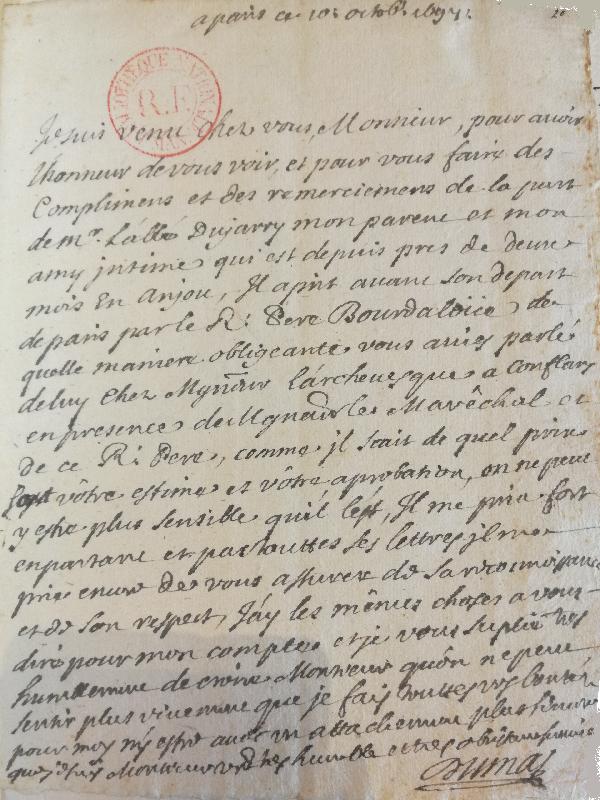 a paris ce 10e octobr. 1697.
BIBLIOTHEQUE NATIONALE
R.F.
MANUSCRITS
Je suis venu chez vous, Monsieur, pour avoir
lhonneur de vous voir, et pour vous faire des
Complimens et des remerciemens de la part
de mr. Labbé Dujarry mon parent et mon
amy intime qui est depuis pres de deux
mois En anjou, Il aprit avant son depart
de paris par le R: Pere Bourdaloüe de
quelle maniere obligeante vous aviés parlé
de luy Chez Mgneur Larchevesque a Conflans
en presence de Mgneur le Maréchal et
de ce R: Pere, comme jl scait de quel prix
sont vôtre estime et vôtre aprobation, on ne peut
y estre plus sensible quil l'est, Il me pria fort
en partant et par touttes ses lettres jl me
prie encore de vous assurer de sa reconnoissance
et de son respect, J'ay les mêmes choses a vous
dire pour mon compte et je vous suplie tres
humblement de croire Monsieur qu'on ne peut
sentir plus vivement que je fais touttes vos bontés
pour moy ny estre avec un attachement plus sincere
que je suis Monsieur vre tres humble et tres obeissant serviteur
Dumas